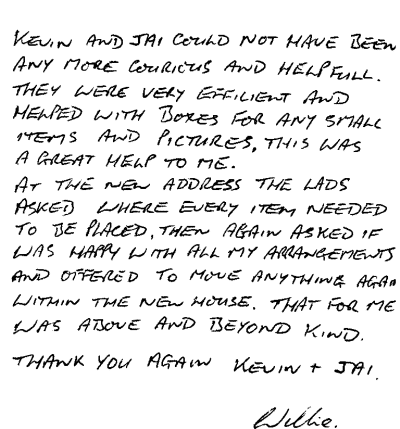 KEVIN AND JAI COULD NOT HAVE BEEN
ANY MORE COURIOUS AND HELPFULL.
THEY WERE VERY EFFILIENT AND
HELPED WITH BOXES FOR ANY SMALL
ITEMS AND PICTURES, THIS WAS
A GREAT HELP TO ME.
AT THE NEW ADDRESS THE LADS
ASKED WHERE EVERY ITEM NEEDED
TO BE PLACED, THEN AGAIN ASKED IF
WAS HAPPY WITH ALL MY ARRANGEMENTS
AND OFFERED TO MOVE ANYTHING AGAI
WITHIN THE NEW HOUSE. THAT FOR ME
WAS ABOVE AND BEYOND KIND.
THANK YOU AGAIN KEVIN + JAI.
Willie.